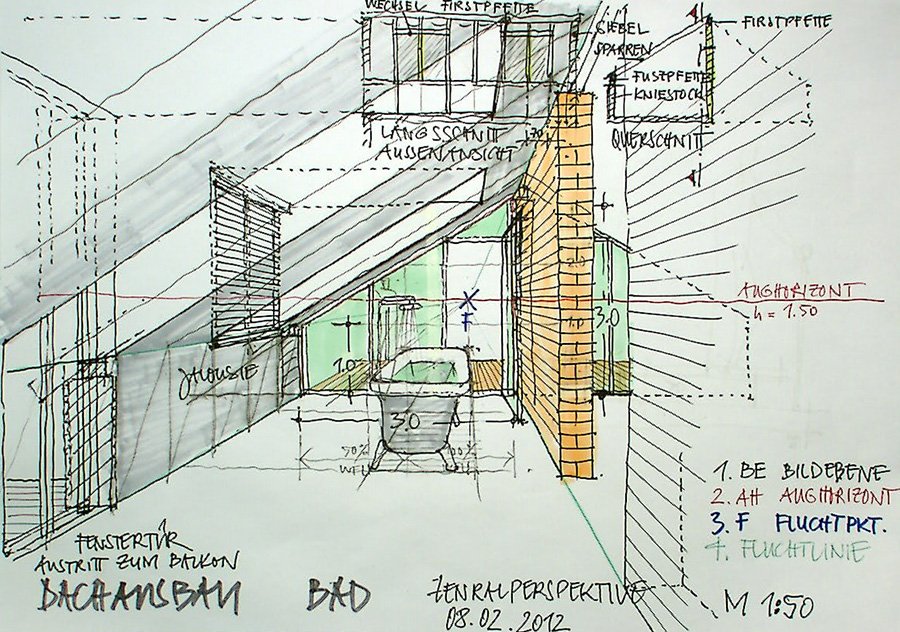 WECHSEL FIRSTPFETTE
GIEBEL
SPARREN
FIRSTPFETTE
FUSZPFETTE
KNIESTOCK
LÄNGSSCHNITT
AUSSENANSICHT
QUERSCHNITT
AUGHORIZONT
h = 1.50
F
3.0
1.0
JALOUSIE
3.0
50%
100%
1. BE BILDEBENE
2. AH AUGHORIZONT
3. F FLUCHTPKT.
4. FLUCHTLINIE
FENSTERTÜR
AUSTRITT ZUM BALKON
DACHAUSBAU BAD
ZENRALPERSPEKTIVE
08.02.2012
M 1:50